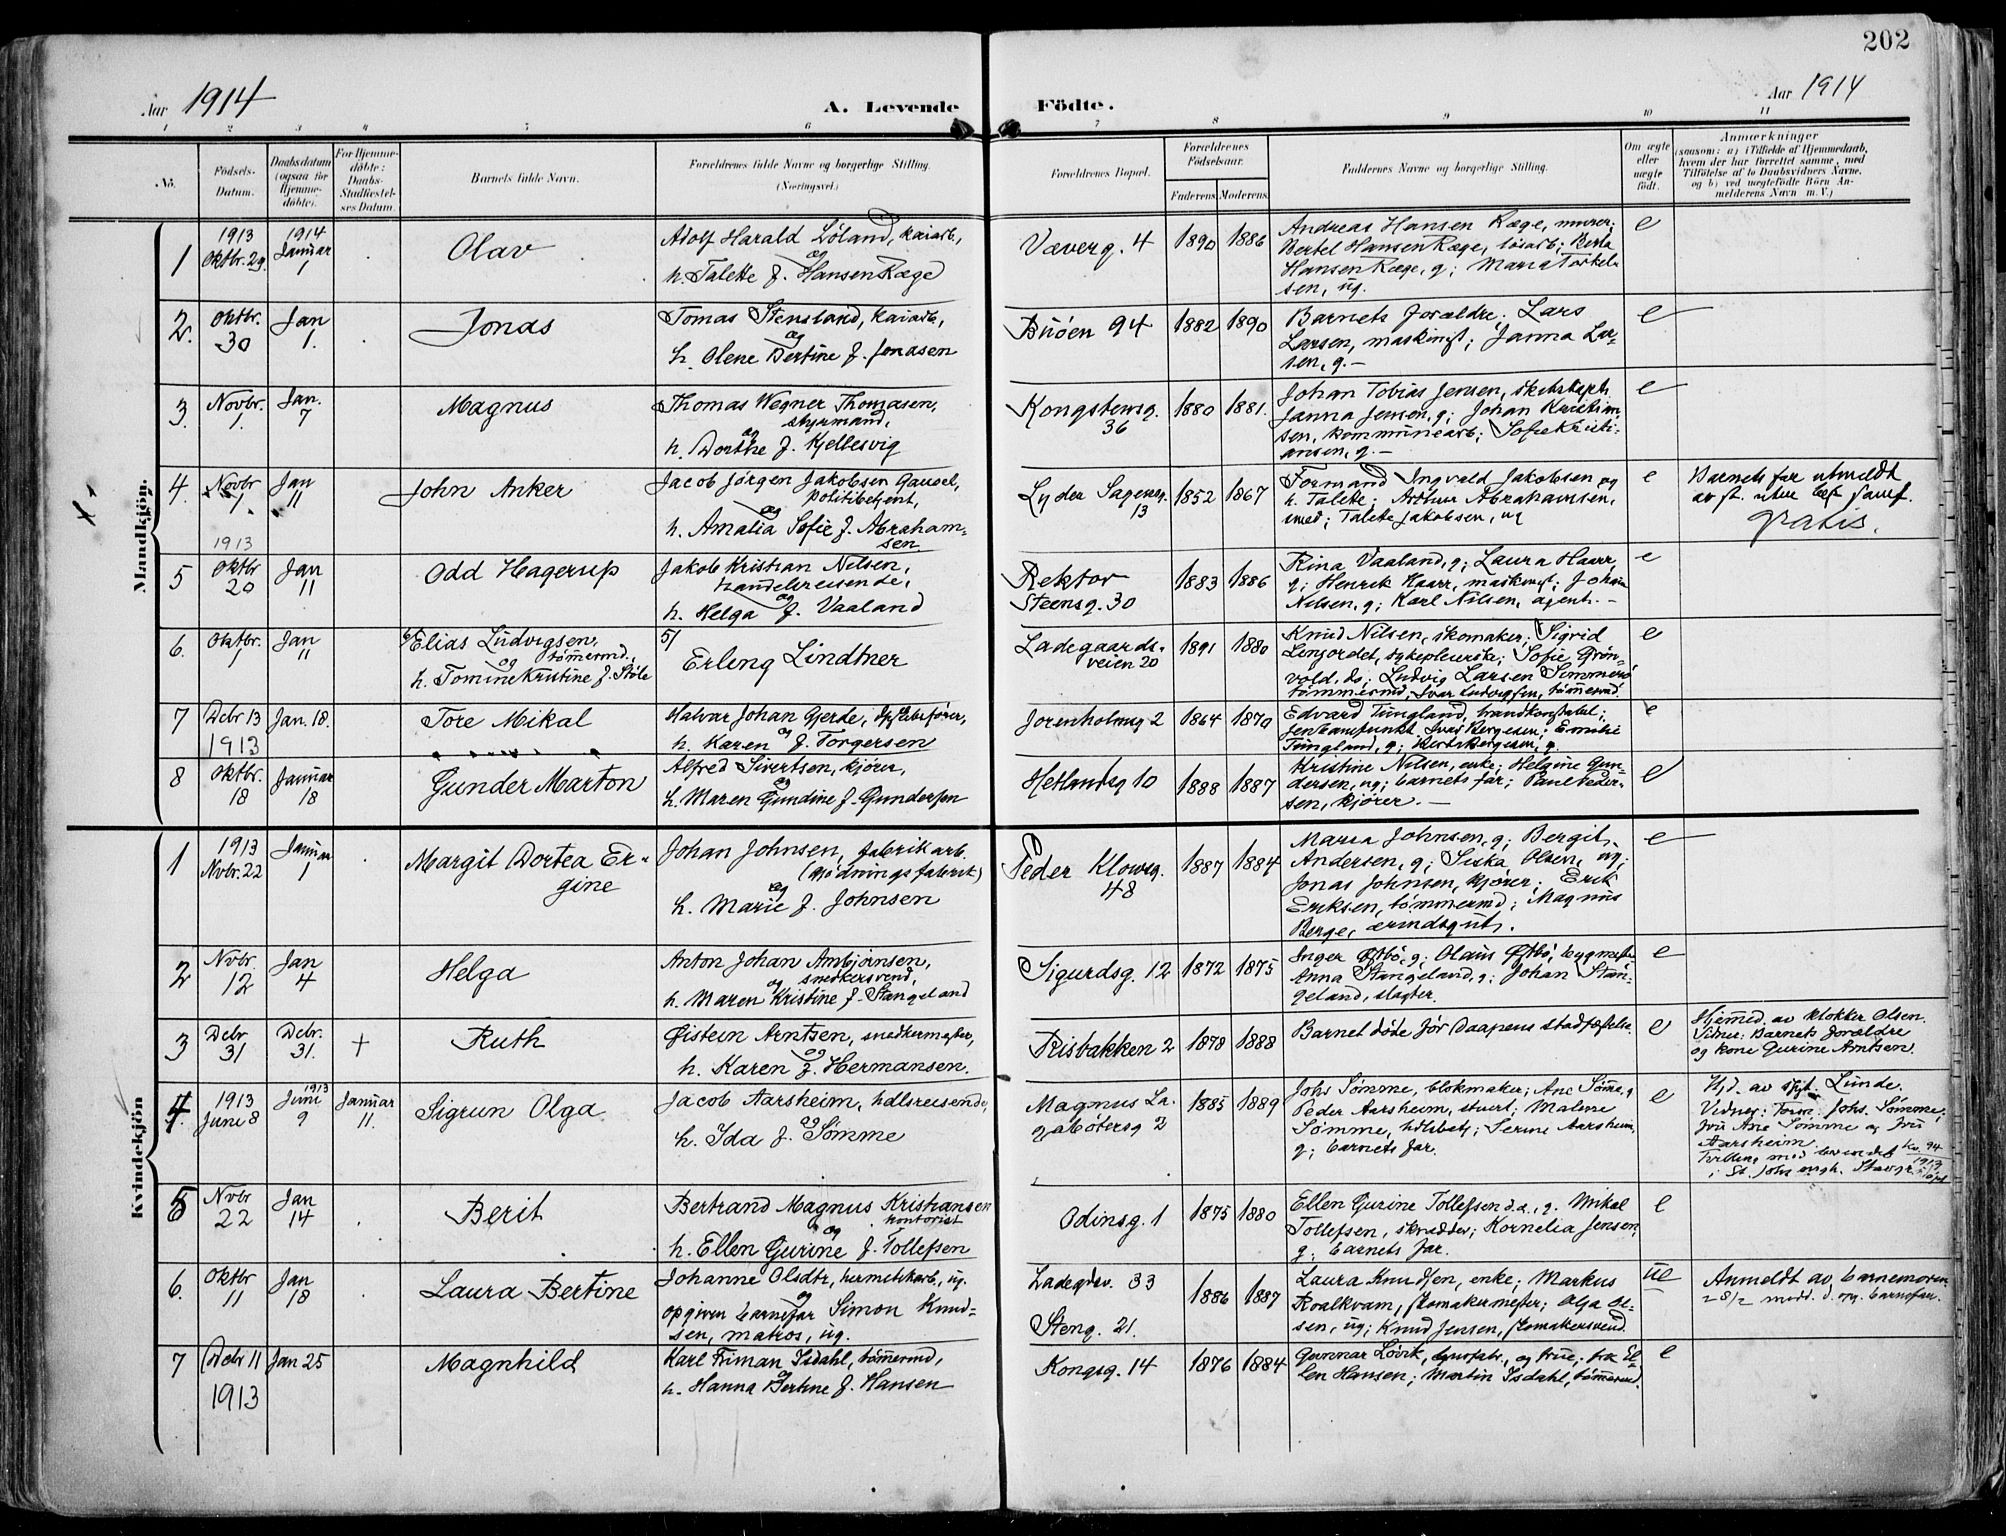 202
Aar 1914
A. Levende Fødte.
Aar 1914
1 2 3 4 5 6 7 8 9 10 11
No.
Fødsels-
Datum.
Daabsdatum
(ogsaa for
Hjemme-
døbte).
For Hjemme-
døbte:
Daabs-
Stadfæstel-
ses Datum.
Barnets fulde Navn.
Forældrenes fulde Navne og borgerlige Stilling.
(Næringsvei.)
Forældrenes Bopæl.
Forældrenes
Fødselsaar.
Faderens. Moderens.
Faddernes Navne og borgerlige Stilling.
Om ægte
eller
uægte
født.
Anmærkninger
(saasom: a) i Tilfælde af Hjemmedaab,
hvem der har forrettet samme, med
Tilføielse af to Daabsvidners Navne,
og b) ved uægtefødte Børn An-
melderens Navn m. V.)
Mandkjøn.
1
1913
Oktbr. 29
1914
Januar
1
Olav
Adolf Harald Løland, kaiarb.,
og
h. Talette f. Hansen Ræge
Væverg. 4
1890 1886
Andreas Hansen Ræge, murer;
Bertel Hansen Ræge, løsarb; Berta
Hansen Ræge, g; Maria Torkel-
sen, ug.
e
2.
Oktbr.
30
Jan
1.
Jonas
Tomas Stensland, kaiarb,
og
h. Olene Bertine f. Jonasen
Buøen 94
1882 1890
Barnets forældre. Lars
Larsen, maskinist; Janna Lar-
sen, g. –
e
3.
Novbr.
1.
Jan.
7
Magnus
Thomas Wegner Thomasen,
styrmand,
og
h. Dorthe f. Kjellesvig
Kongstensg.
36
1880 1881.
Johan Tobias Jensen,
Janna Jensen, g; Johan Kristian-
sen, kommunearb; Sofie Kristi-
ansen, g. –
e
4.
Novbr
1
Jan
11
John Anker
Jacob Jørgen Jakobsen Gausel,
politibetjent,
og
h. Amalia Sofie f. Abraham-
sen
Lyder Sagensg.
13
1852 1867
Formand Ingvald Jakobsen og
h. Talette; Arthur Abrahamsen,
smed; Talette Jakobsen, ug
e
Barnets far utmeldt
av st.
gratis.
5
1913
Oktbr
20
Jan
11
Odd Hagerup
Jakob Kristian Nilsen,
handelsreisende,
og
h. Helga f. Vaaland
Rektor
Steensg. 30
1883 1886
Rina Vaaland, g; Laura Haarr,
g; Henrik Haarr, maskinist; Johan
Nilsen, g; Karl Nilsen, agent. –
e
6.
Oktbr.
1
Jan
11
6/ Elias Ludvigsen,
tømmermd.,
og
h. Tomine Kristine f. Støle
5/
Erling Lindtner
Ladegaards-
veien 20
1891 1880
Knud Nilsen, skomaker; Sigrid
Lenjordet, sykepleierske; Sofie Grøn-
vold, do; Ludvig Larsen
tømmermd, Ivar Ludvigsen, tømmermd.
e
7
Debr 13
1913
Jan. 18.
Tore Mikal
Halvar Johan Gjerde,
og
h. Karen f. Torgersen
Jorenholmsg 2
1864 1870
Edvard Tungland, brandkonstabel;
Ivar Bergesen; Emilie
Tungland, g; Berta Bergesen, g.
e
8
Oktbr.
18
Januar
18
Gunder Marton
Alfred Sivertsen, kjører,
og
h. Maren Gundine f. Gundersen
Hetlandsg 10
1888 1887
Kristine Nilsen, enke; Helgine Gun-
dersen, ug; barnets far; Paul Peder-
sen, kjører. –
e
Kvindekjøn
1
1913
Novbr. 22
Januar
1
Margit Dortea Er-
gine
Johan Johnsen, fabrikarb.
(gjødningsfabrik)
og
h. Marie f. Johnsen
Peder Klowsg.
48
1887 1884
Maria Johnsen, g; Bergit
Andersen, g; Siska Olsen, ug;
Jonas Johnsen, kjører; Erik
Eriksen, tømmermd; Magnus
Berge, ærindsgut.
e
2
Novbr.
12
Jan
4
Helga
Anton Johan Ambjørnsen,
snedkersvend,
og
h. Maren Kristine f. Stangeland
Sigurdsg. 12
1872 1875
Inger Østbø, g; Olaus Østbø, bygmester
Anna Stangeland, g; Johan Stan-
geland, slagter.
e
3
Debr
31
Debr.
31.
+
Ruth
Øistein Arntsen, snedkermester,
og
h. Karen f. Hermansen.
Risbakken 2
1878 1888
Barnet døde før Daapens stadfæstelse.
e
Hjemmed. av klokker Olsen.
Vidner: Barnets forældre
og kone Gurine Arntsen.
4
1913
Juni 8
1913
Juni
9
Januar
11.
Sigrun Olga
Jacob Aarsheim, hdlsreisende,
og
h. Ida f. Sømme
Magnus La-
gabøtersg 2
1885 1889
Johs Sømme, blokmaker; Ane Sømme, g
Peder Aarsheim, stuert; Malene
Sømme, hdlsbetj; Serine Aarsheim,
g; barnets far.
e
Hjd. av spr. Lunde.
Vidner: Johs. Sømme,
fru Ane Sømme og fru
Aarsheim.
Tvilling med
5
Novbr
22
Jan
14
Berit
Bertrand Magnus Kristiansen
kontorist
og
h. Ellen Gurine f. Tollefsen
Odinsg. 1
1875 1880
Ellen Gurine Tollefsen d.æ., g. Mikal
Tollefsen, skrædder; Kornelia Jensen,
g; barnets far.
e
6.
Oktbr
11
Jan
18
Laura Bertine
Johanne Olsdtr, hermetikarb, ug.
og
opgiven barnefar Simon Knud-
sen, matros, ug.
Ladegdsv. 33
Steng. 21.
1886 1887
Laura Knudsen, enke; Markus
Roalkvam, skomakermester; Olga Ol-
sen, ug; Knud Jensen, skomakersvend.
ue
Anmeldt av barnemoren
28/2 medd. d. opg. barnefar.
7
Debr 11
1913
Jan 25
Magnhild
Karl Friman Isdahl, tømmermd,
og
h. Hanna Bertine f. Hansen
Kongsg. 14
1876 1884
Gunnar Løvik, og frue; frk El-
len Hansen; Martin Isdahl, tømmermd.
e